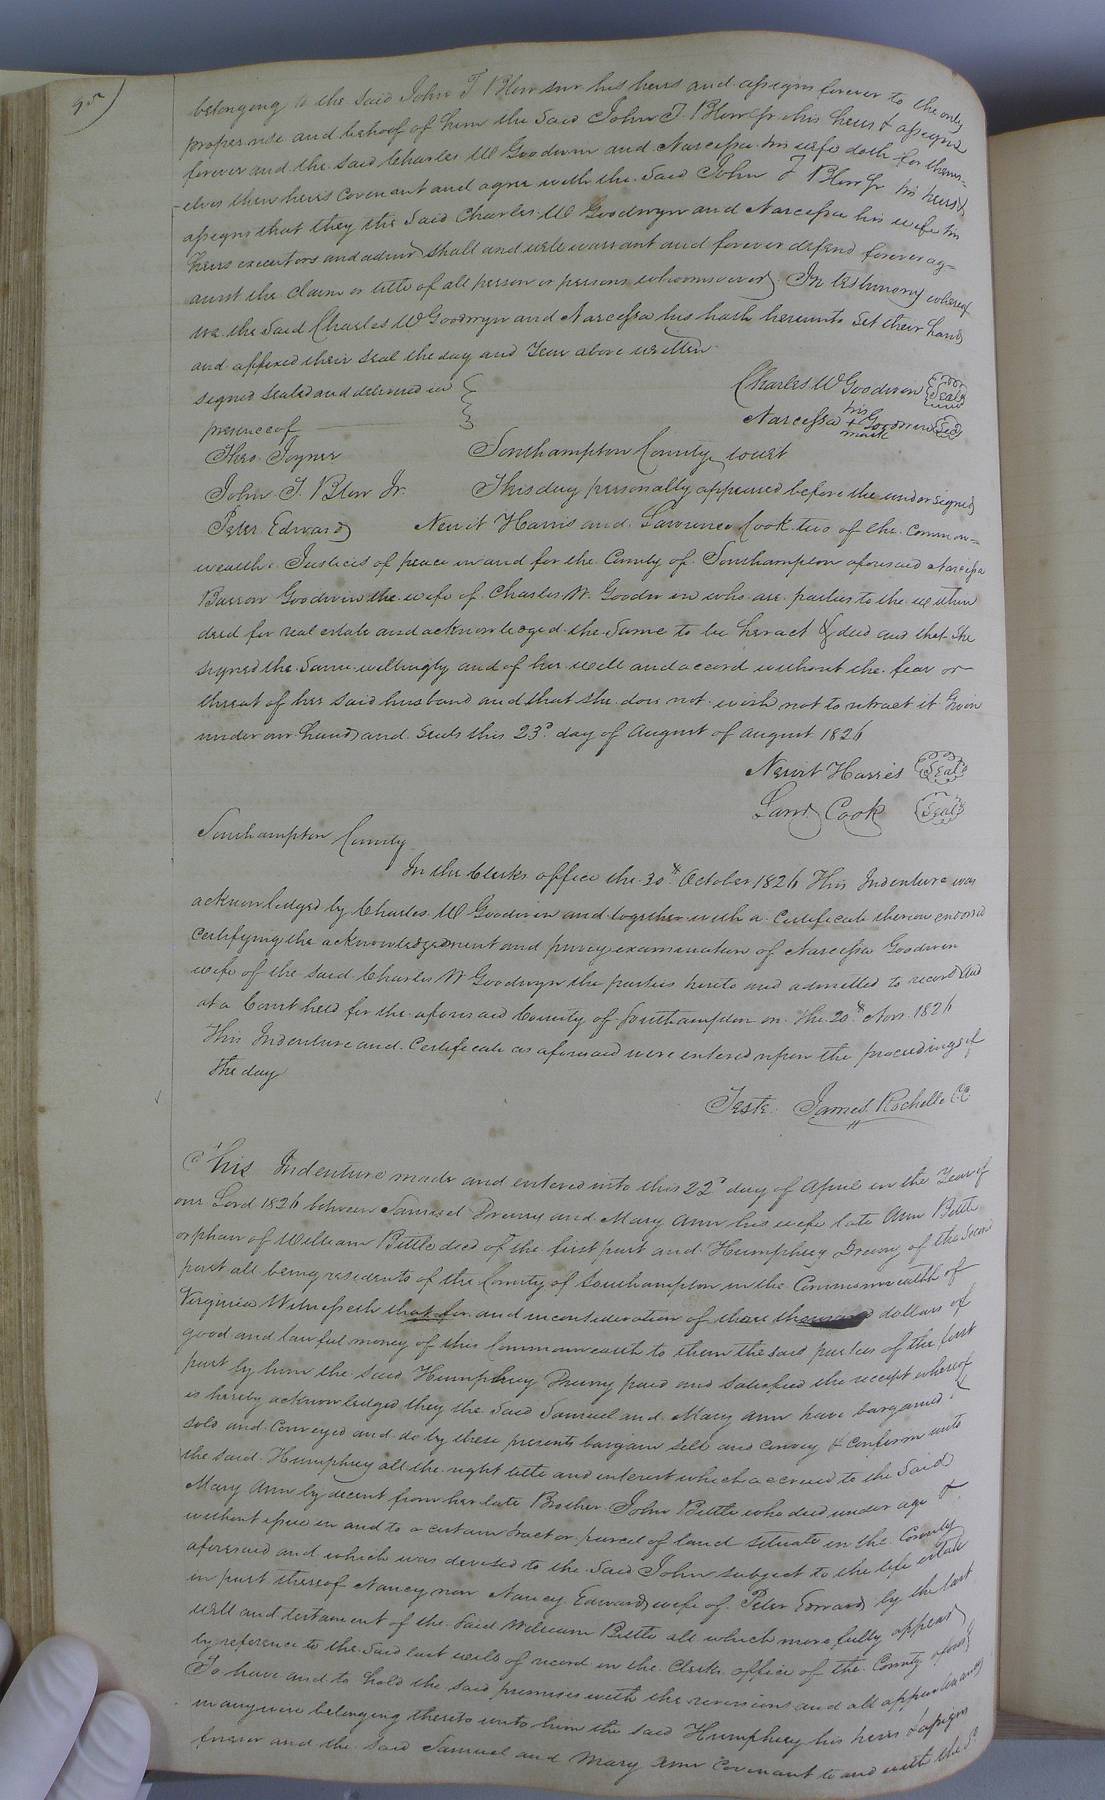 95)
belonging to the said John T Blow snr his heirs and assigns forever to the only
proper use and behoof of him the said John T. Blow Jr his heirs & assigns
forever and the said Charles W Goodwin and Narcissa his wife doth for them=
=elves their heirs covenant and agree with the said John T Blow Jr his heirs &
assigns that they the said Charles W Goodwyn and Narcissa his wife his
heirs executors and admrs shall and will warrant and forever defend forever ag=
=ainst the claim or title of all person or persons whomsoever In testimony whereof
we the said Charles W Goodwyn and Narcessa his hath hereunto set their hands
and affixed their seal the day and Year above written
signed sealed and delivered in
presence of
Charles W Goodwin Seal
Narcessa his + mark Goodwin Seal
Theo. Joyner
Southampton County court
John T. Blow Jr.
This day personally appeared before the undersigned
Peter Edwards
Newit Harris and Lawrence Cook two of the Common=
wealth Justices of peace in and for the County of Southampton aforesaid Narcissa
Barrow Goodwin the wife of Charles W. Goodwin who are parties to the within
deed for real estate and acknowledged the same to be her act & deed and that she
signed the same willingly and of her will and accord without the fear or
threat of her said husband and that she does not wish not to retract it Given
under our hands and seals this 23d day of August of august 1826
Newit Harris Seal
Lawr Cook Seal
Southampton County
In the Clerks office the 30th October 1826 This Indenture was
acknowledged by Charles W Goodwin and together with a certificate thereon endorsed
certifying the acknowledgement and privy examination of Narcissa Goodwin
wife of the said Charles W Goodwyn the parties hereto and admitted to record And
at a Court held for the aforesaid County of Southampton on the 20th Nov. 1826
This Indenture and Certificate as aforesaid were entered upon the proceedings of
the day
Teste James Rochelle CC
This Indenture made and entered into this 22d day of April in the Year of
our Lord 1826 between Samuel Drewry and Mary Ann his wife late Ann Bittle
orphan of William Bittle decd of the first part and Humphrey Drewry of the Second
part all being residents of the County of Southampton in the Commonwealth of
Virginia Witnesseth that for and in consideration of three thousand dollars of
good and lawful money of this Commonwealth to them the said parties of the first
part by him the said Humphrey Drewry paid and satisfied the receipt whereof
is hereby acknowledged they the said Samuel and Mary Ann have bargained &
sold and conveyed and do by these presents bargain sell and convey & confirm unto
the said Humphrey all the right title and interest which accrued to the said
Mary Ann by decent from her late Brother John Bittle who died under age &
without issue in and to a certain tract or parcel of land situate in the County
aforesaid and which was devised to the said John subject to the life estate
in part thereof Nancy now Nancy Edwards wife of Peter Edwards by the last
will and testament of the said William Bittle all which more fully appears
by reference to the said last will of record in the Clerks office of the County aforesd
To have and to hold the said premises with the reversions and all appurtenances
in anywise belonging thereto unto him the said Humphrey his heirs & assigns
forever and the said Samuel and Mary Ann Covenant to and with the Sd